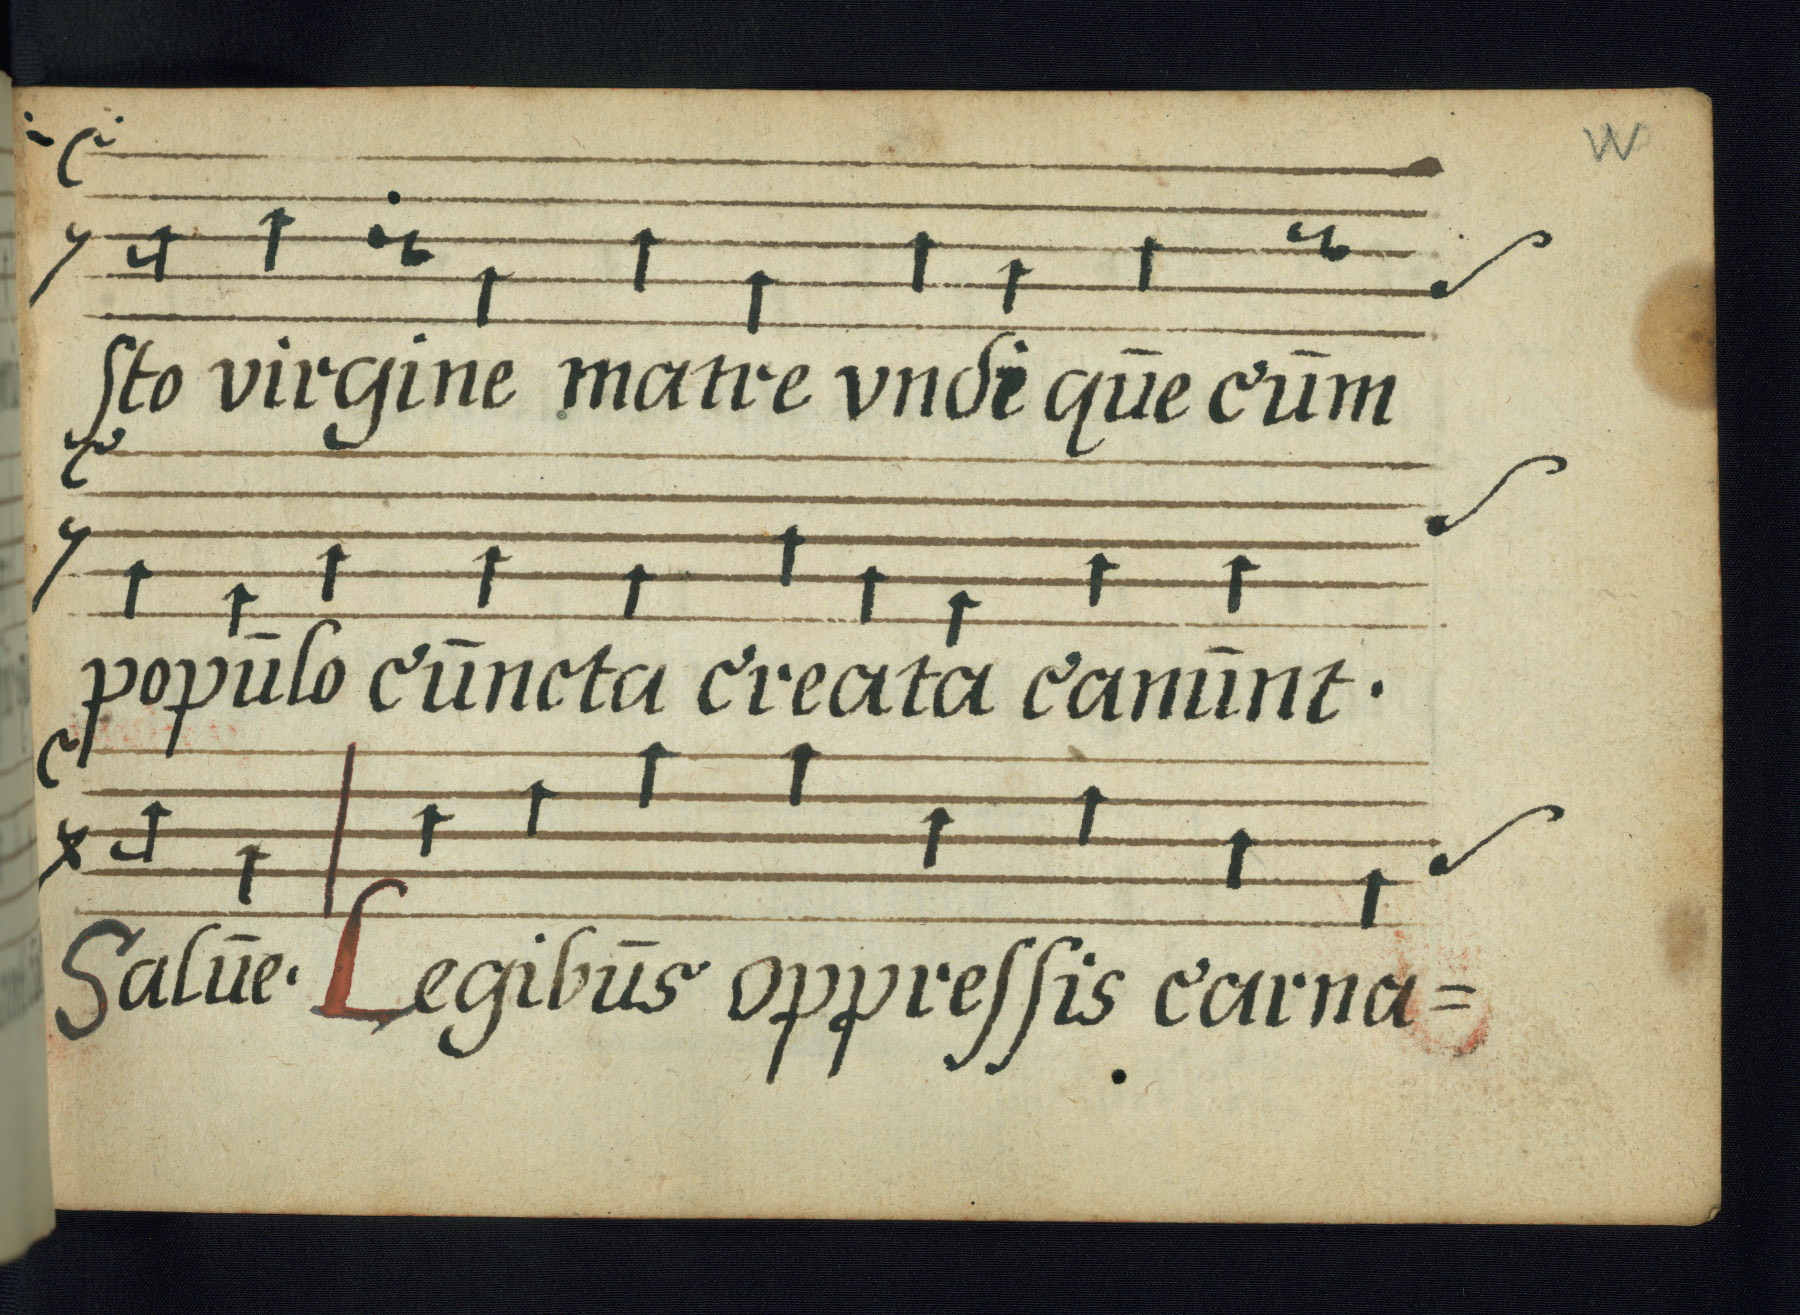 sto virgine matre vndi qūe cūm
popūlo cūncta creata canūnt.
Salūe. Legibūs oppressis carna=